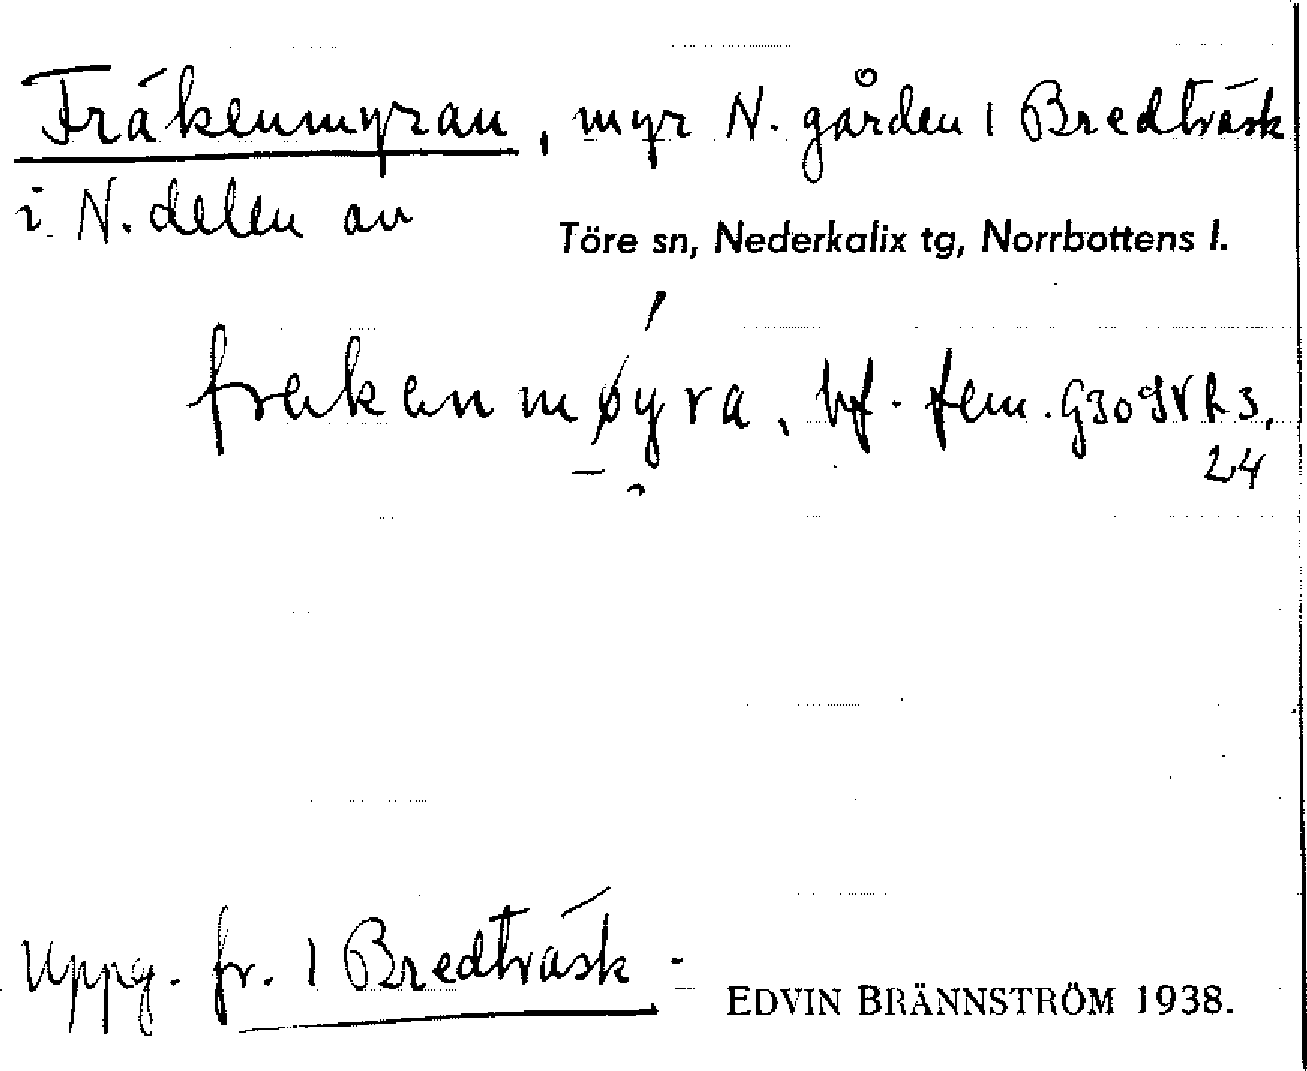 Fräkenmyran, myr N. gården 1 Bredträsk
i N. delen av
Töre sn, Nederkalix tg, Norrbottens l.
frekanmøyra, bf. fem.
24
Uppg. fr. 1 Bredträsk -
EDVIN BRÄNNSTRÖM 1938.